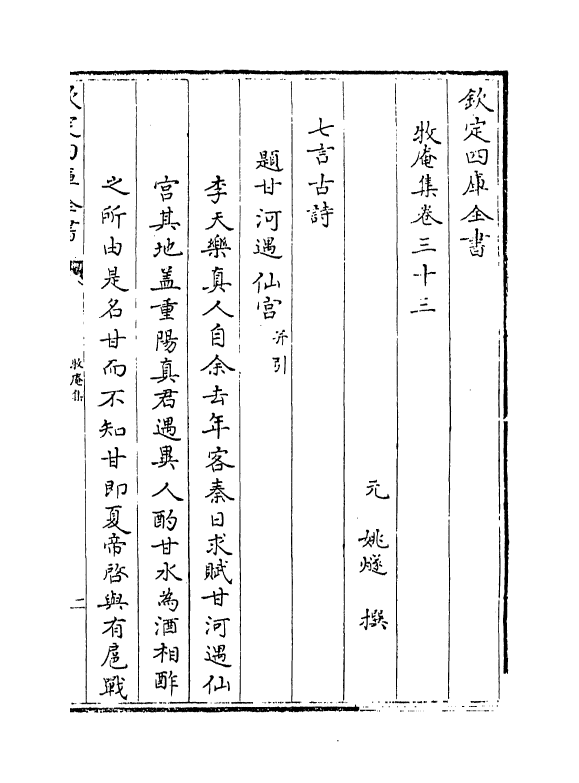 欽定四庫全書
牧庵集卷三十三
元 姚燧 撰
七言古詩
題甘河遇仙宮并引
李天樂真人自余去年客秦日求賦甘河遇仙
宮其地蓋重陽真君遇異人酌甘水為酒相酢
之所由是名甘而不知甘即夏帝啓與有扈戰
欽定四庫全書
牧庵集